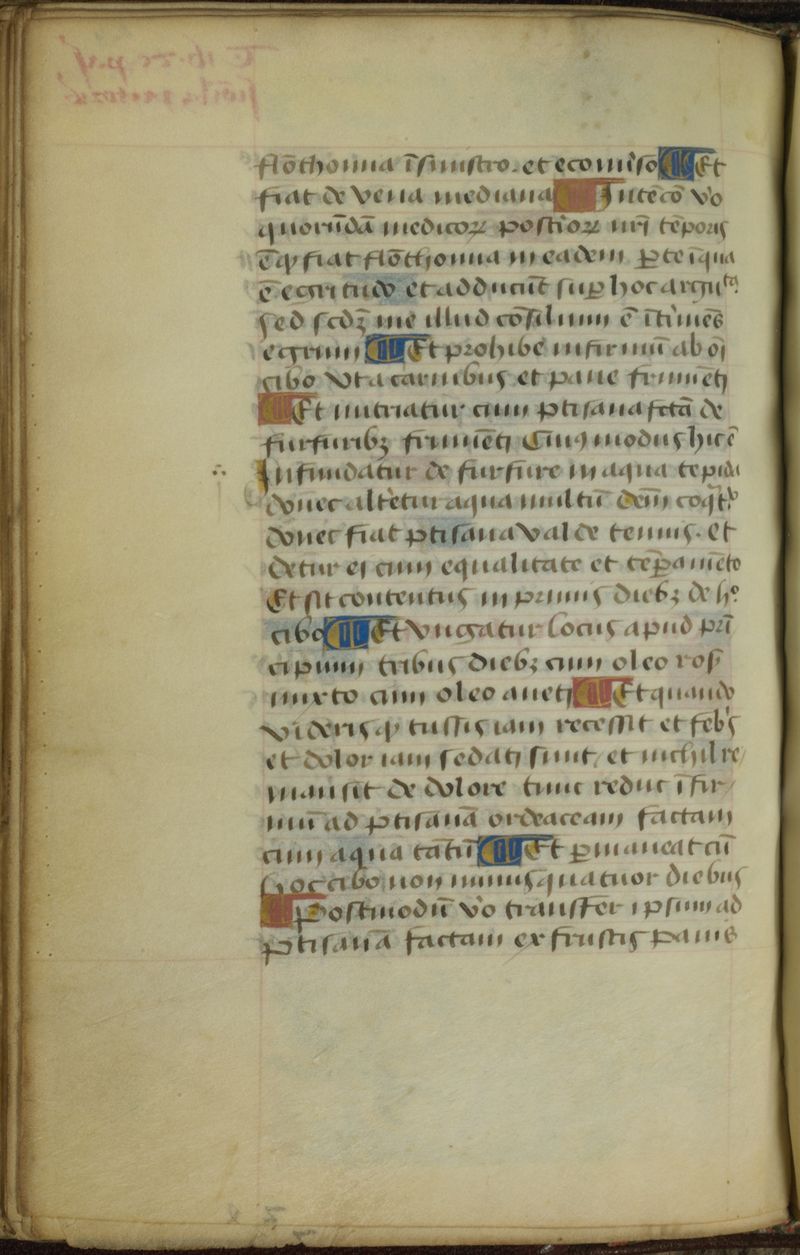 flōthomia ī sinistro. et eco nūso ¶ Et
fiat de vena mediana ¶ Intētō v̄o
quorūdā medicoꝝ postīoꝝ nr̄i tēporis
ē ꝙ fiat flōthomia in eadem ꝑte ī qua
ē egritudo et adducūt suꝑ hoc argūta
sed scd̄ꝫ me illud cōsilium ē ītimēs
egrum ¶ Et prohibe infirmū ab oī
cibo vt a carnibus et pane frumēti
¶ Et nutriatur cum ptisana fctā de
furfuribꝫ frumēti Cuiꝰ modus hic ē
Infundatur de furfure in aqua tepida
donec altētur aqua multū deīn coq̄tr
donec fiat ptisana valde tenuis. et
detur ei cum equalitate et tēꝑamēto
Et sit contentus in primis diebꝫ de hᵒ
cibo ¶ Et vngatur locus apud prī
cipium tribus diebꝫ cum oleo ros̄
mixto cum oleo aneti ¶ Et quando
videris ꝙ tussis iam recessit et febꝰs
et dolor iam sedati sunt, et nichil re
mansit de dolore tunc reduc īfir
mū ad ptisanā ordeaceam factam
cum aqua tātū ¶ Et ꝑmaneat cū
hoc cibo non minus quatuor diebus
¶ Postmodū v̄o transfer ipsum ad
ptisanā factam ex frustis panis